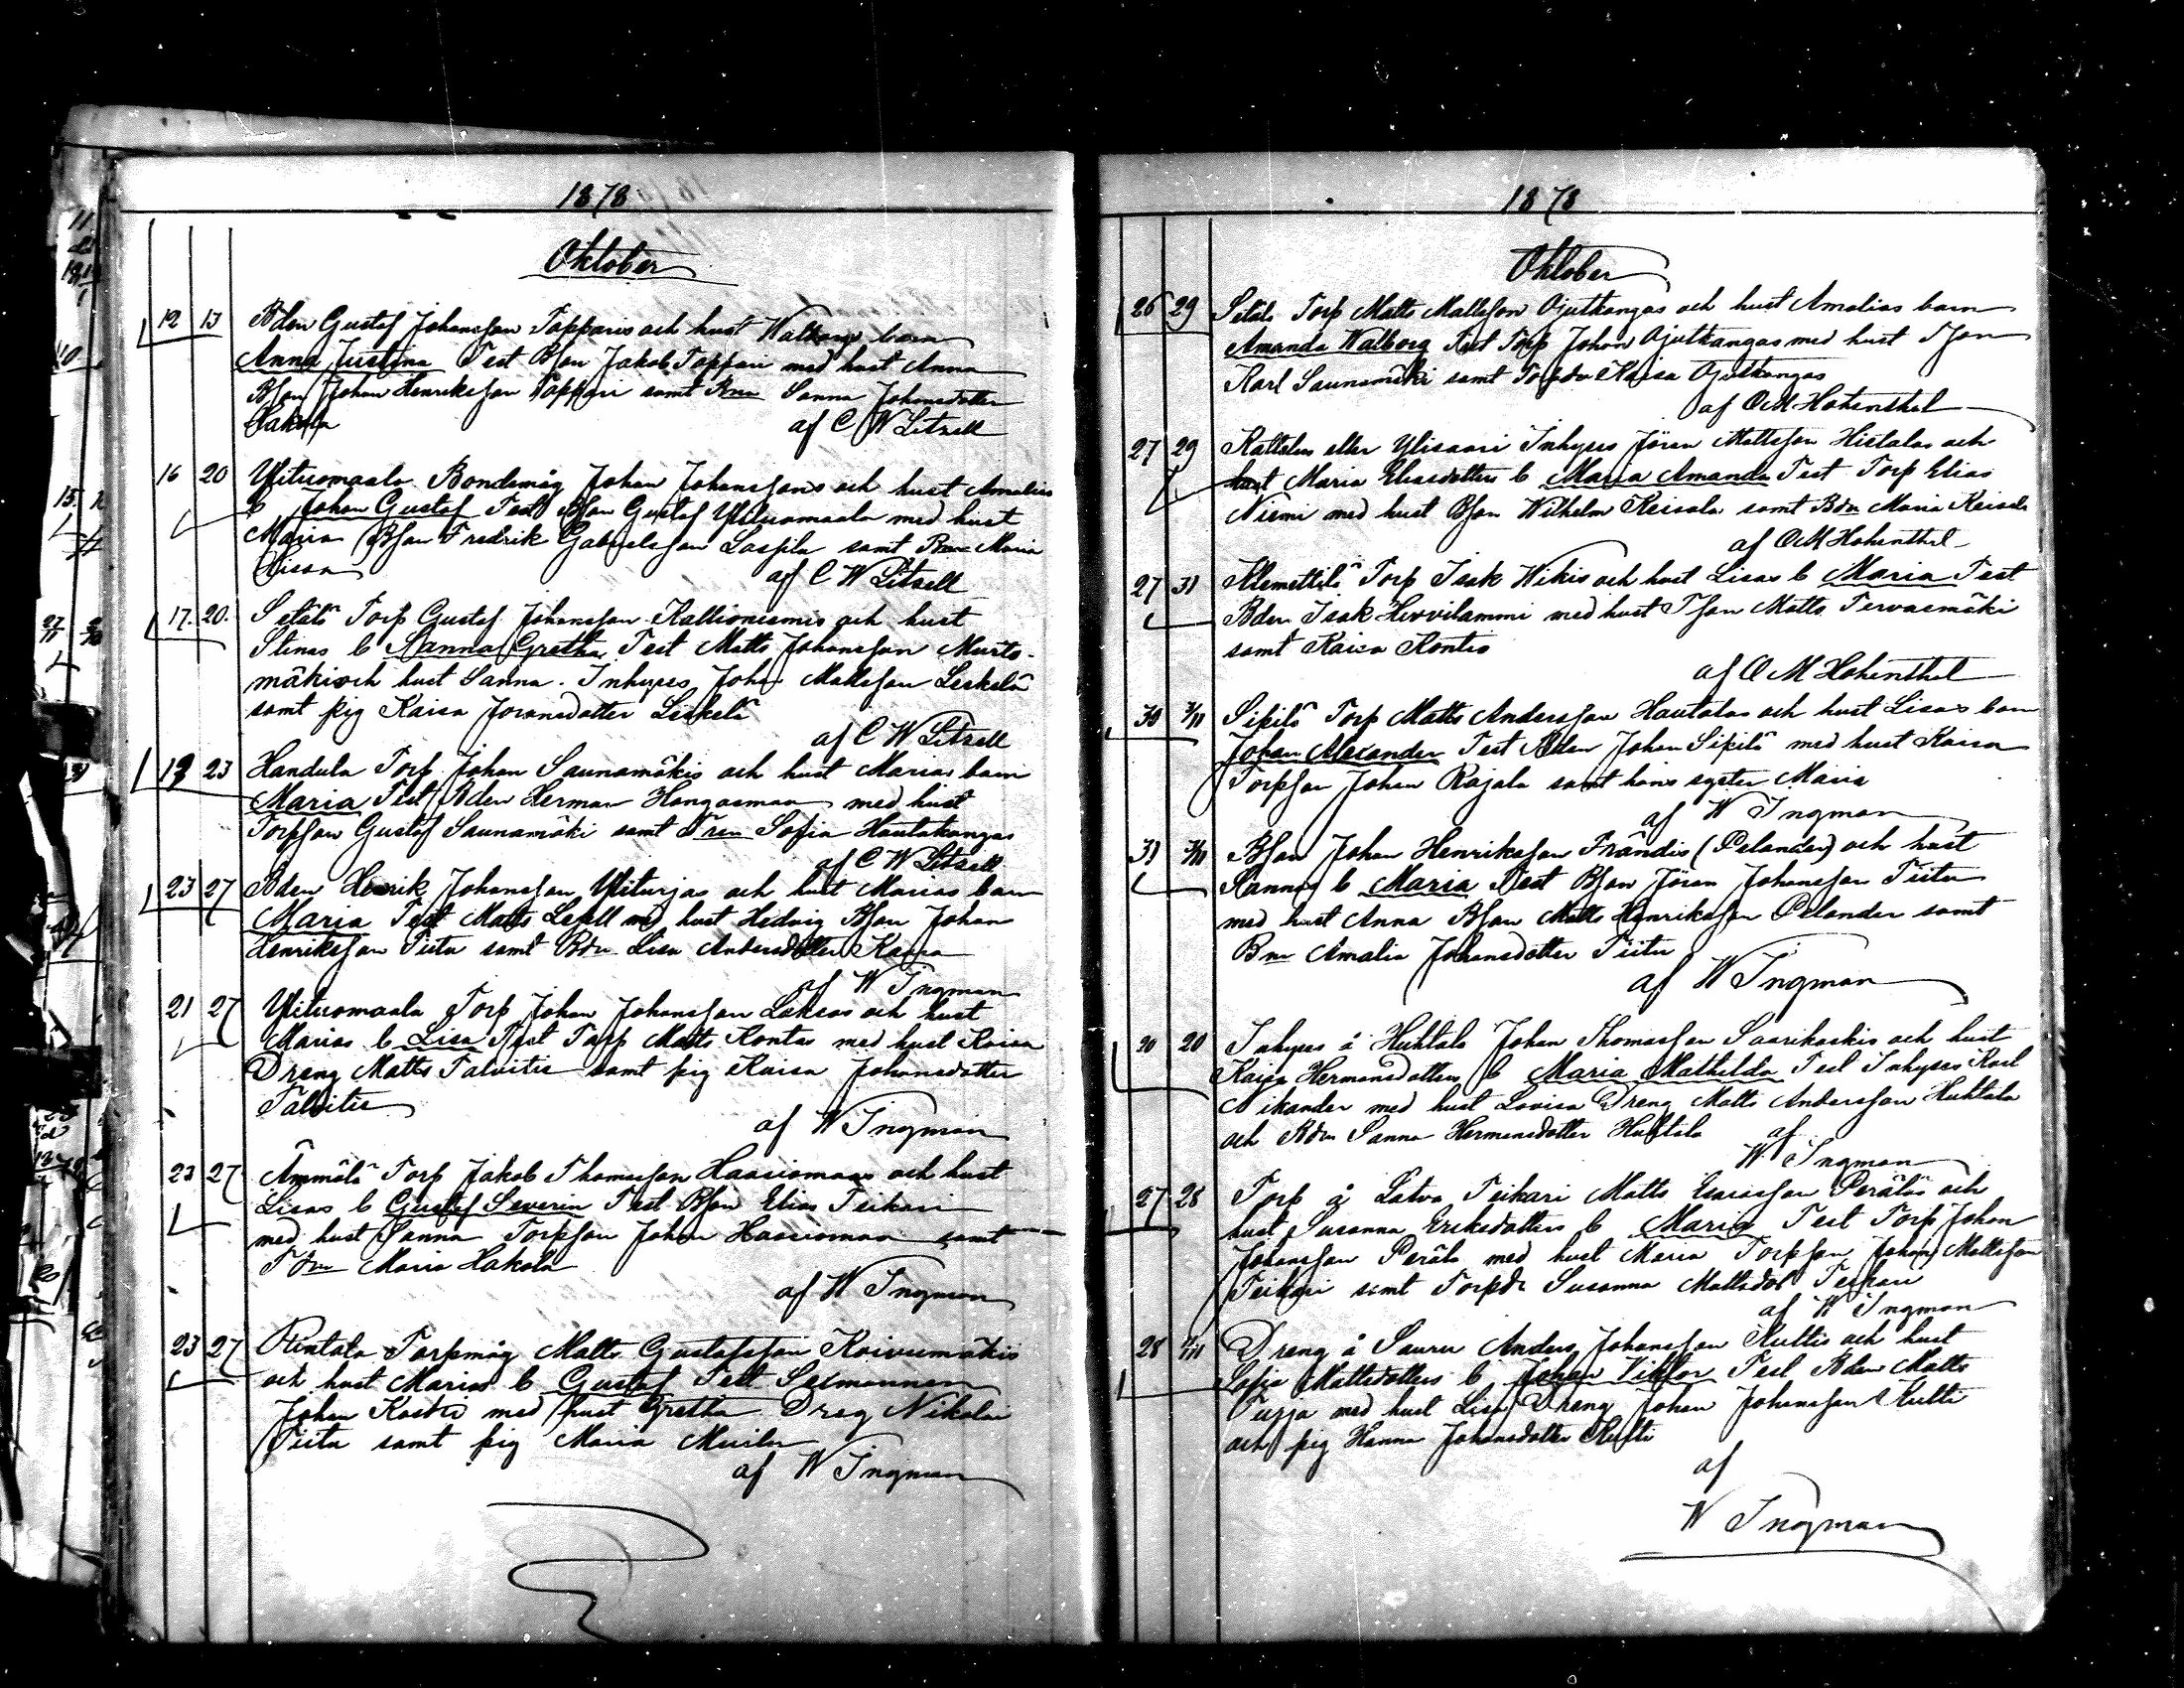 1878
Oktober
12 13 Bden Gustaf Johansson Topparis och hust Walborgs barn
Anna Justina Test Bson Jakob Toppari med hust Anna
Bson Johan Henriksson Toppari samt Sanna Johansdotter
Hakola af C W Litzell
16 20 Ylituomaala Bondemåg Johan Johanssons och hust Amalias
b Johan Gustaf Test Bson Gustaf Ylituomaala med hust
Maria Bson Fredrik Gabrielsson Laspila samt Maria
af C W Litzell
17. 20. Setälä Torp Gustaf Johansson Kallioniemis och hust
Stinas b Sanna Gretha Test Matts Johansson Murto-
mäki och hust Sanna. Inhyses Johan Mattsson Leskelä
samt pig Kaisa Joransdotter Leskelä
af C W Litzell
19 23 Handula Torp Johan Saunamäkis och hust Marias barn
Maria Test Bden Herman Hangasmaa med hust
Torpson Gustaf Saunamäki samt Sofia Hautakangas
af C W Litzell
23 27 Bden Henrik Johansson Yliturjas och hust Marias barn
Maria Test Matts Lefell med hust Hedvig Bson Johan
Henriksson Tiitu samt Bdn Lisa Andersdotter Kaapa
af W Ingman
21 27 Ylituomaala Torp Johan Johansson Luksas och hust
Marias b Lisa Test Torp Matts Kontas med hust Kaisa
Dreng Matts Talvitie samt pig Kaisa Johansdotter
Talvitie
af W Ingman
23 27 Ämmälä Torp Jakob Thomasson Haasiomaas och hust
Lisas b Gustaf Severin Test Bson Elias Teikari
med hust Sanna Torpson Johan Haasiomaa samt
Tdn Maria Hakola
af W Ingman
23 27 Rintala Torpmåg Matts Gustafsson Koivumäkis
och hust Marias b Gustaf Test Sexmannen
Johan Kaskis med hust Gretha Dreg Nikolai
Tiitu samt pig Maria Murila
af W Ingman
1878
Oktober
26 29 Setälä Torp Matts Mattsson Ojutkangas och hust Amalias barn
Amanda Walborg Test Torp Johan Ojutkangas med hust Tson
Karl Saunamäki samt Torpdn Kaisa Ojutkangas
af O M Hohenthal
27 29 Kattelus eller Ylisaari Inhyses Jöran Mattsson Hietalas och
hust Maria Eliasdotters b Maria Amanda Test Torp Elias
Niemi med hust Bson Wilhelm Keisala samt Bdn Maria Keisala
af O M Hohenthal
27 31 Klemettilä Torp Isak Wikis och hust Lisas b Maria Test
Bden Isak Hirvilammi med hust Tson Matts Tervasmäki
samt Kaisa Kontes
af O M Hohenthal
30 3/11 Sipilä Torp Matts Andersson Hautalas och hust Lisas barn
Johan Alexander Test Bden Johan Sipilä med hust Kaisa
Torpson Johan Rajala samt hans syster Maria
af W Ingman
31 3/11 Bson Johan Henriksson Frändis (Pelander) och hust
Sannas b Maria Test Bson Jöran Johansson Tiitu
med hust Anna Bson Matts Henriksson Pelander samt
Bdn Amalia Johansdotter Tiitu
af W Ingman
20 20 Inhyses å Huhtala Johan Thomasson Saarikoskis och hust
Kaisa Hermansdotters b Maria Mathilda Test Inhyses Karl
Nikander med hust Lovisa Dreng Matts Andersson Huhtala
och Bdn Sanna Hermansdotter Huhtala af
W Ingman
27 28 Torp å Latva Teikari Matts Esaiasson Peräläs och
hust Susanna Eriksdotters b Maria Test Torp Johan
Johansson Perälä med hust Maria Torpson Johan Mattsson
Teikari samt Torpdr Susanna Mattsdot Teikari
af W Ingman
28 1/11 Dreng å Sauru Anders Johansson Kultis och hust
Sofia Mattsdotters b Johan Viktor Test Bden Matts
Turja med hust Lisa Dreng Johan Johansson Kulti
och pig Hanna Johansdotter Kulti
af
W Ingman